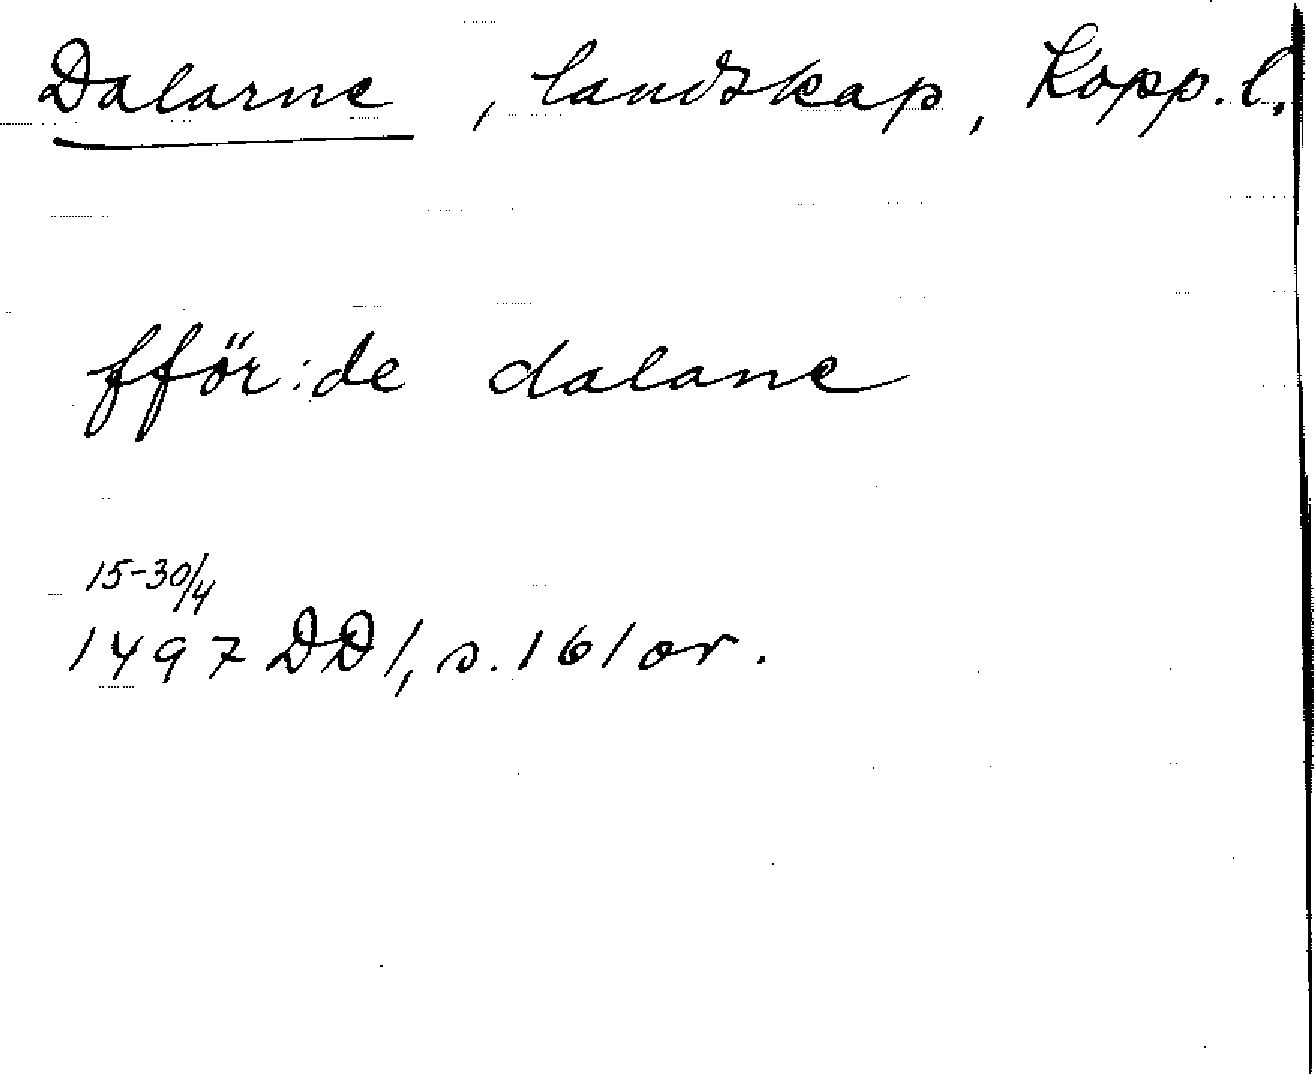 Dalarne, landskap, Kopp. l.
fför:de dalane
15-30/4
1497 DD 1, s. 161 or.